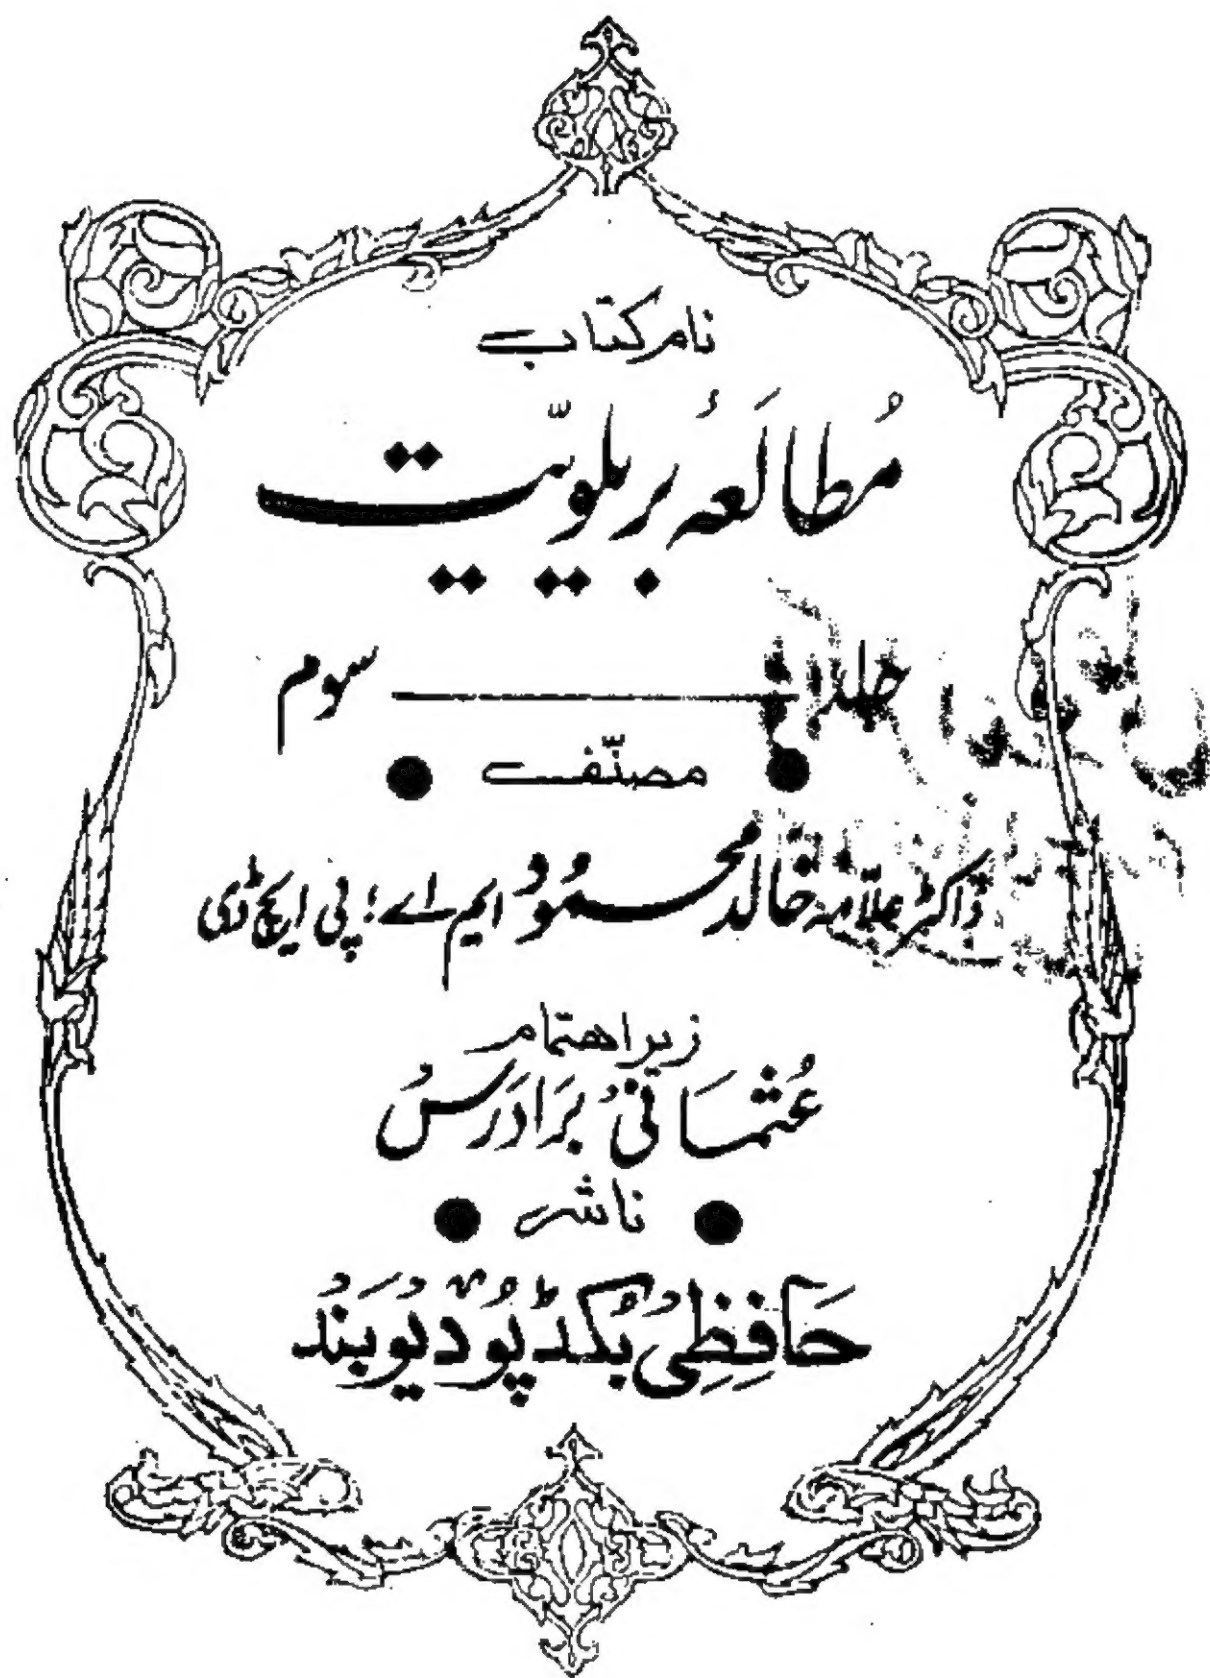 نام کتاب
مُطالَعۂ بریلویّت
جلد ــــــــــ سوم
مصنّف
ڈاکٹر علّامہ خالد محمُودُ ایم اے؛ پی ایچ ڈی
زیر اهتمام
عُثمَانیُ بَرَادَرسُ
ناشر
حَافِظِیُ بُکڈپُو دیُوبَنُد